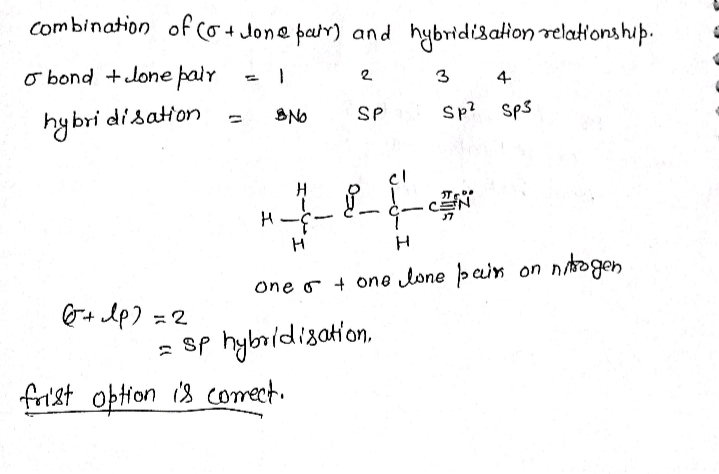 combination of (σ + lone pair) and hybridisation relationship.
σ bond + lone pair = 1 2 3 4
hybridisation = No SP SP² SP³
Cl
H O
H — C — C — C — C ≡ N
π σ π
H H
one σ + one lone pair on nitrogen
(σ + lp) = 2
= SP hybridisation.
frist option is correct.